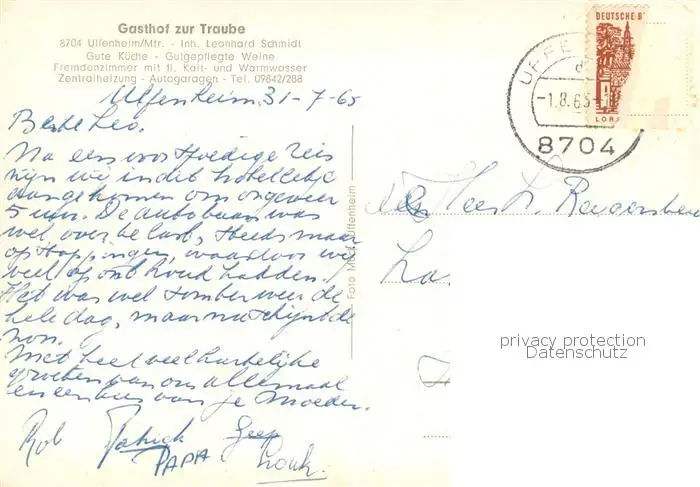 Gasthof zur Traube
8704 Uffenheim/Mfr. - Inh. Leonhard Schmidt
Gute Küche - Gutgepflegte Weine
Fremdenzimmer mit fl. Kalt- und Warmwasser
Zentralheizung - Autogaragen - Tel. 09842/288
Uffenheim, 31-7-65
Beste Leo.
Na een voorspoedige reis
zijn we in dit hotelletje
aangekomen om ongeveer
5 uur. De autobaan was
wel overbelast, steeds maar
opstoppingen, waardoor we
veel oponthoud hadden.
Het was wel somber weer de
hele dag, maar nu schijnt de
zon.
Met heel veel hartelijke
groeten van ons allemaal
en een kus van je Moeder.
Rob Patrick
PAPA
Foto Uffenheim
UFFE
-1.8.65-
8704
DEUTSCHE B
LOR
Heer L.
privacy protection
Datenschutz